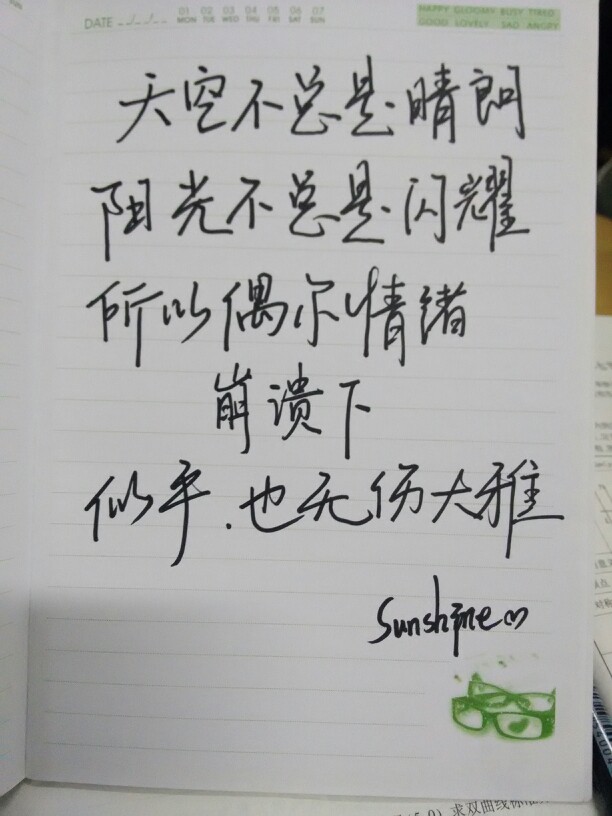 DATE
01 02 03 04 05 06 07
MON TUE WED THU FRI SAT SUN
HAPPY GLOOMY BUSY TIRED
GOOD LOVELY SAD ANGRY
天空不总是晴朗
阳光不总是闪耀
所以偶尔情绪
崩溃下
似乎.也无伤大雅
Sunshine
求双曲线标准